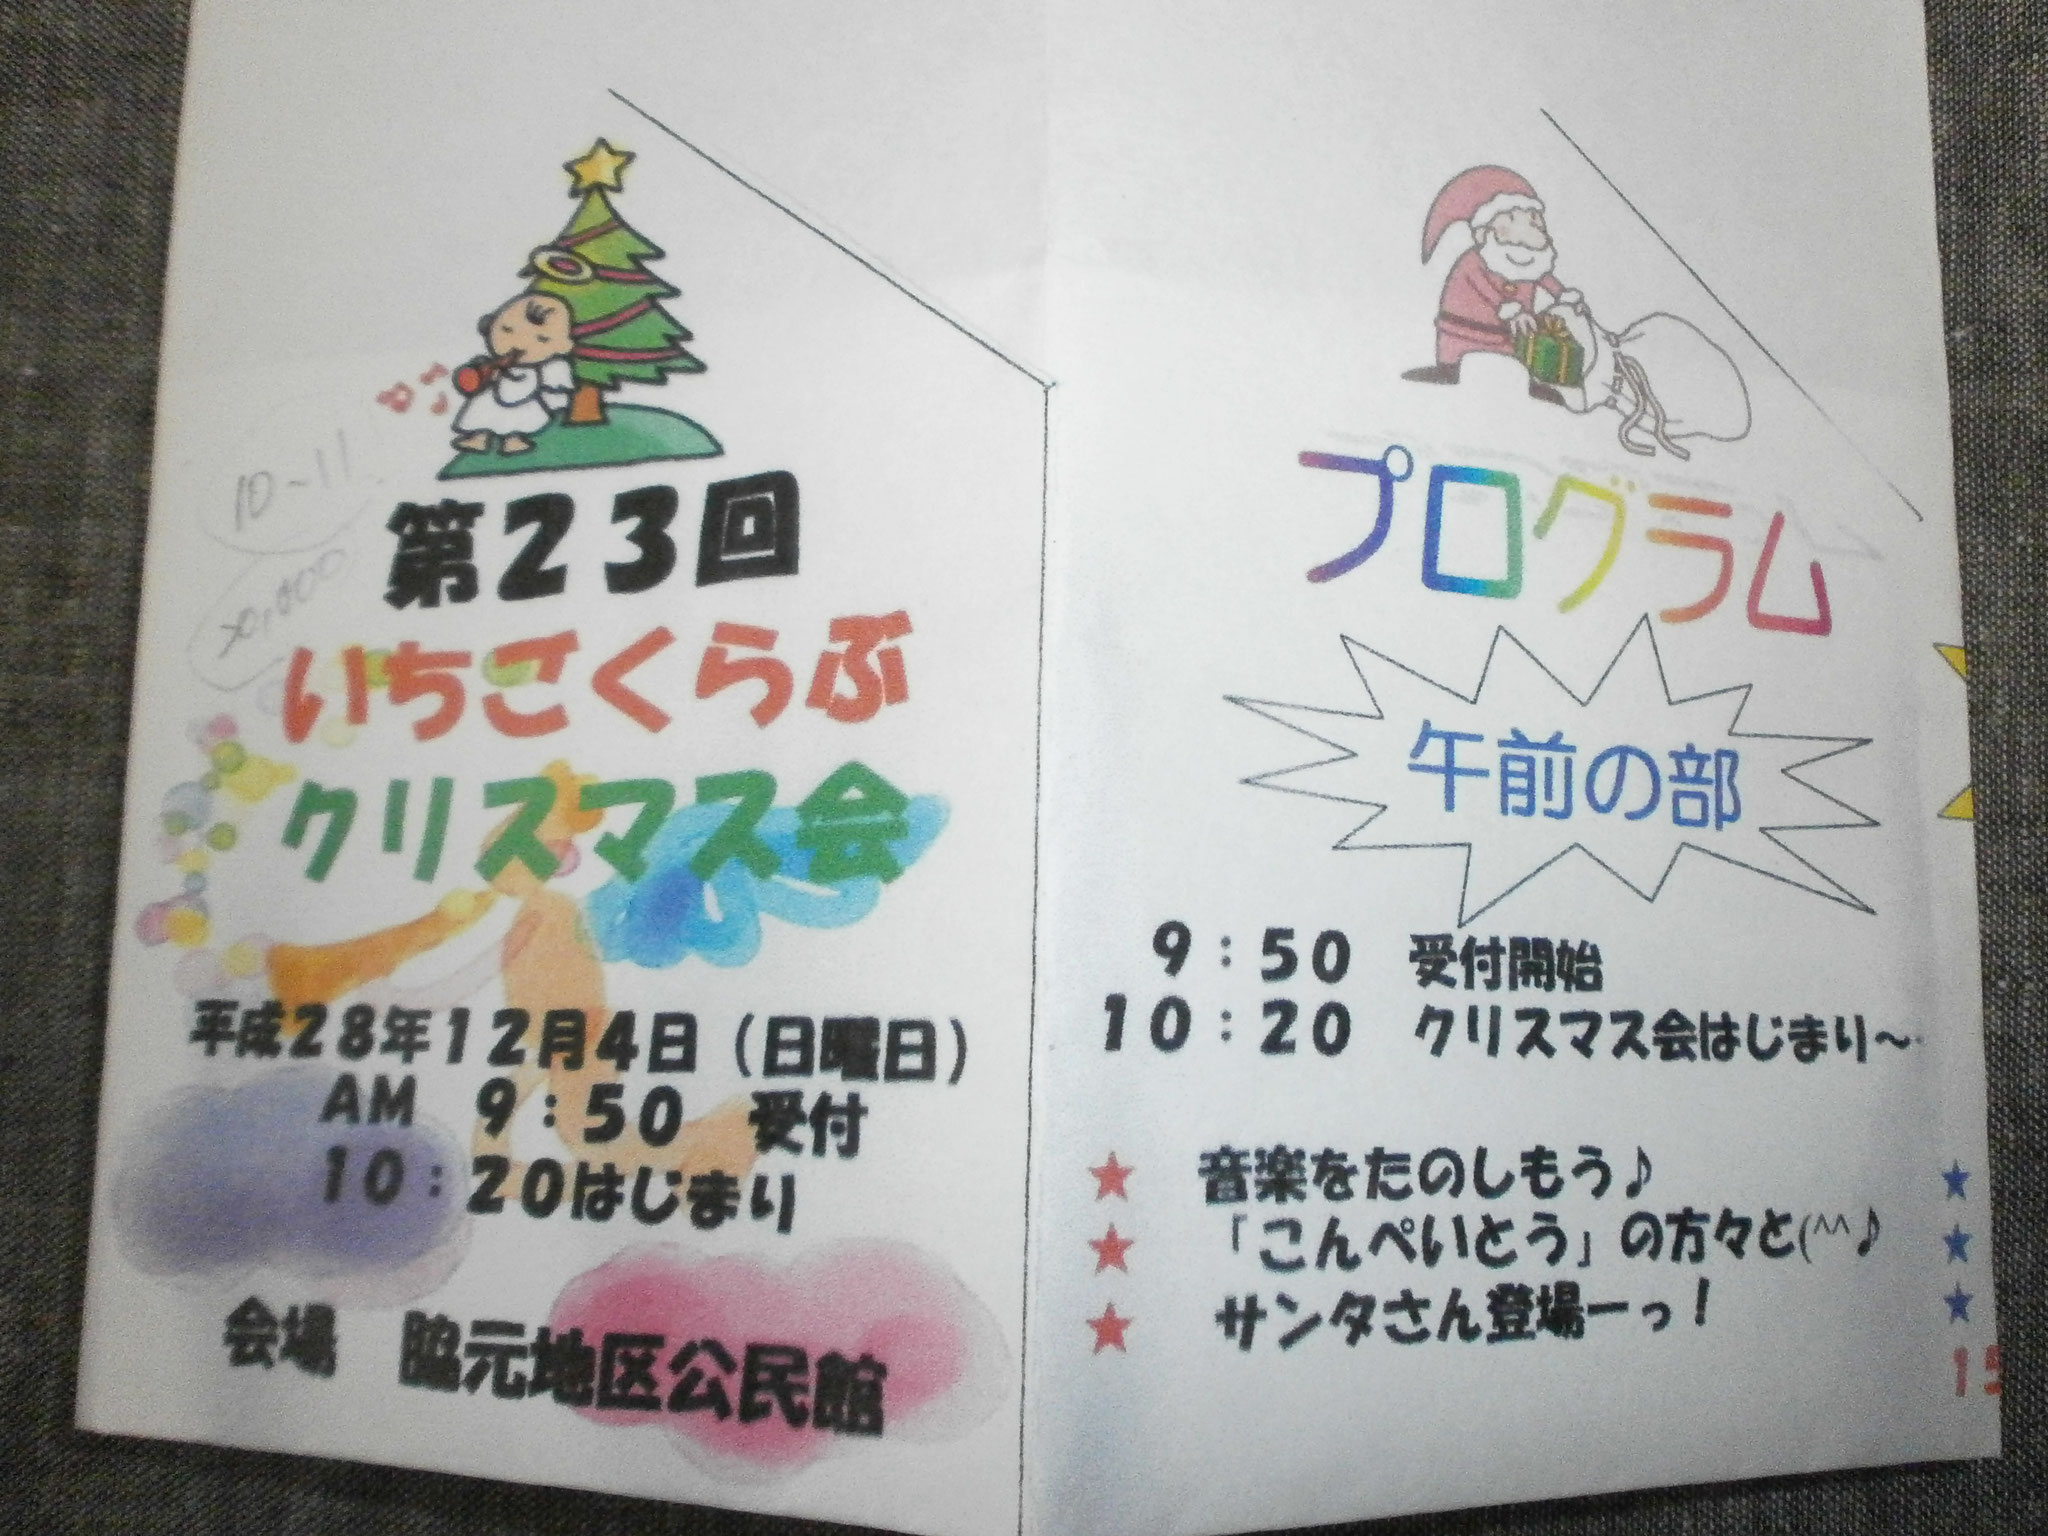 10~11
第23回
いちごくらぶ
クリスマス会
平成28年12月4日（日曜日）
AM 9：50 受付
10：20はじまり
会場 脇元地区公民館
プログラム
午前の部
9：50 受付開始
10：20 クリスマス会はじまり～
★ 音楽をたのしもう♪ ★
★ 「こんぺいとう」の方々と(^^♪ ★
★ サンタさん登場ーっ！ ★
15